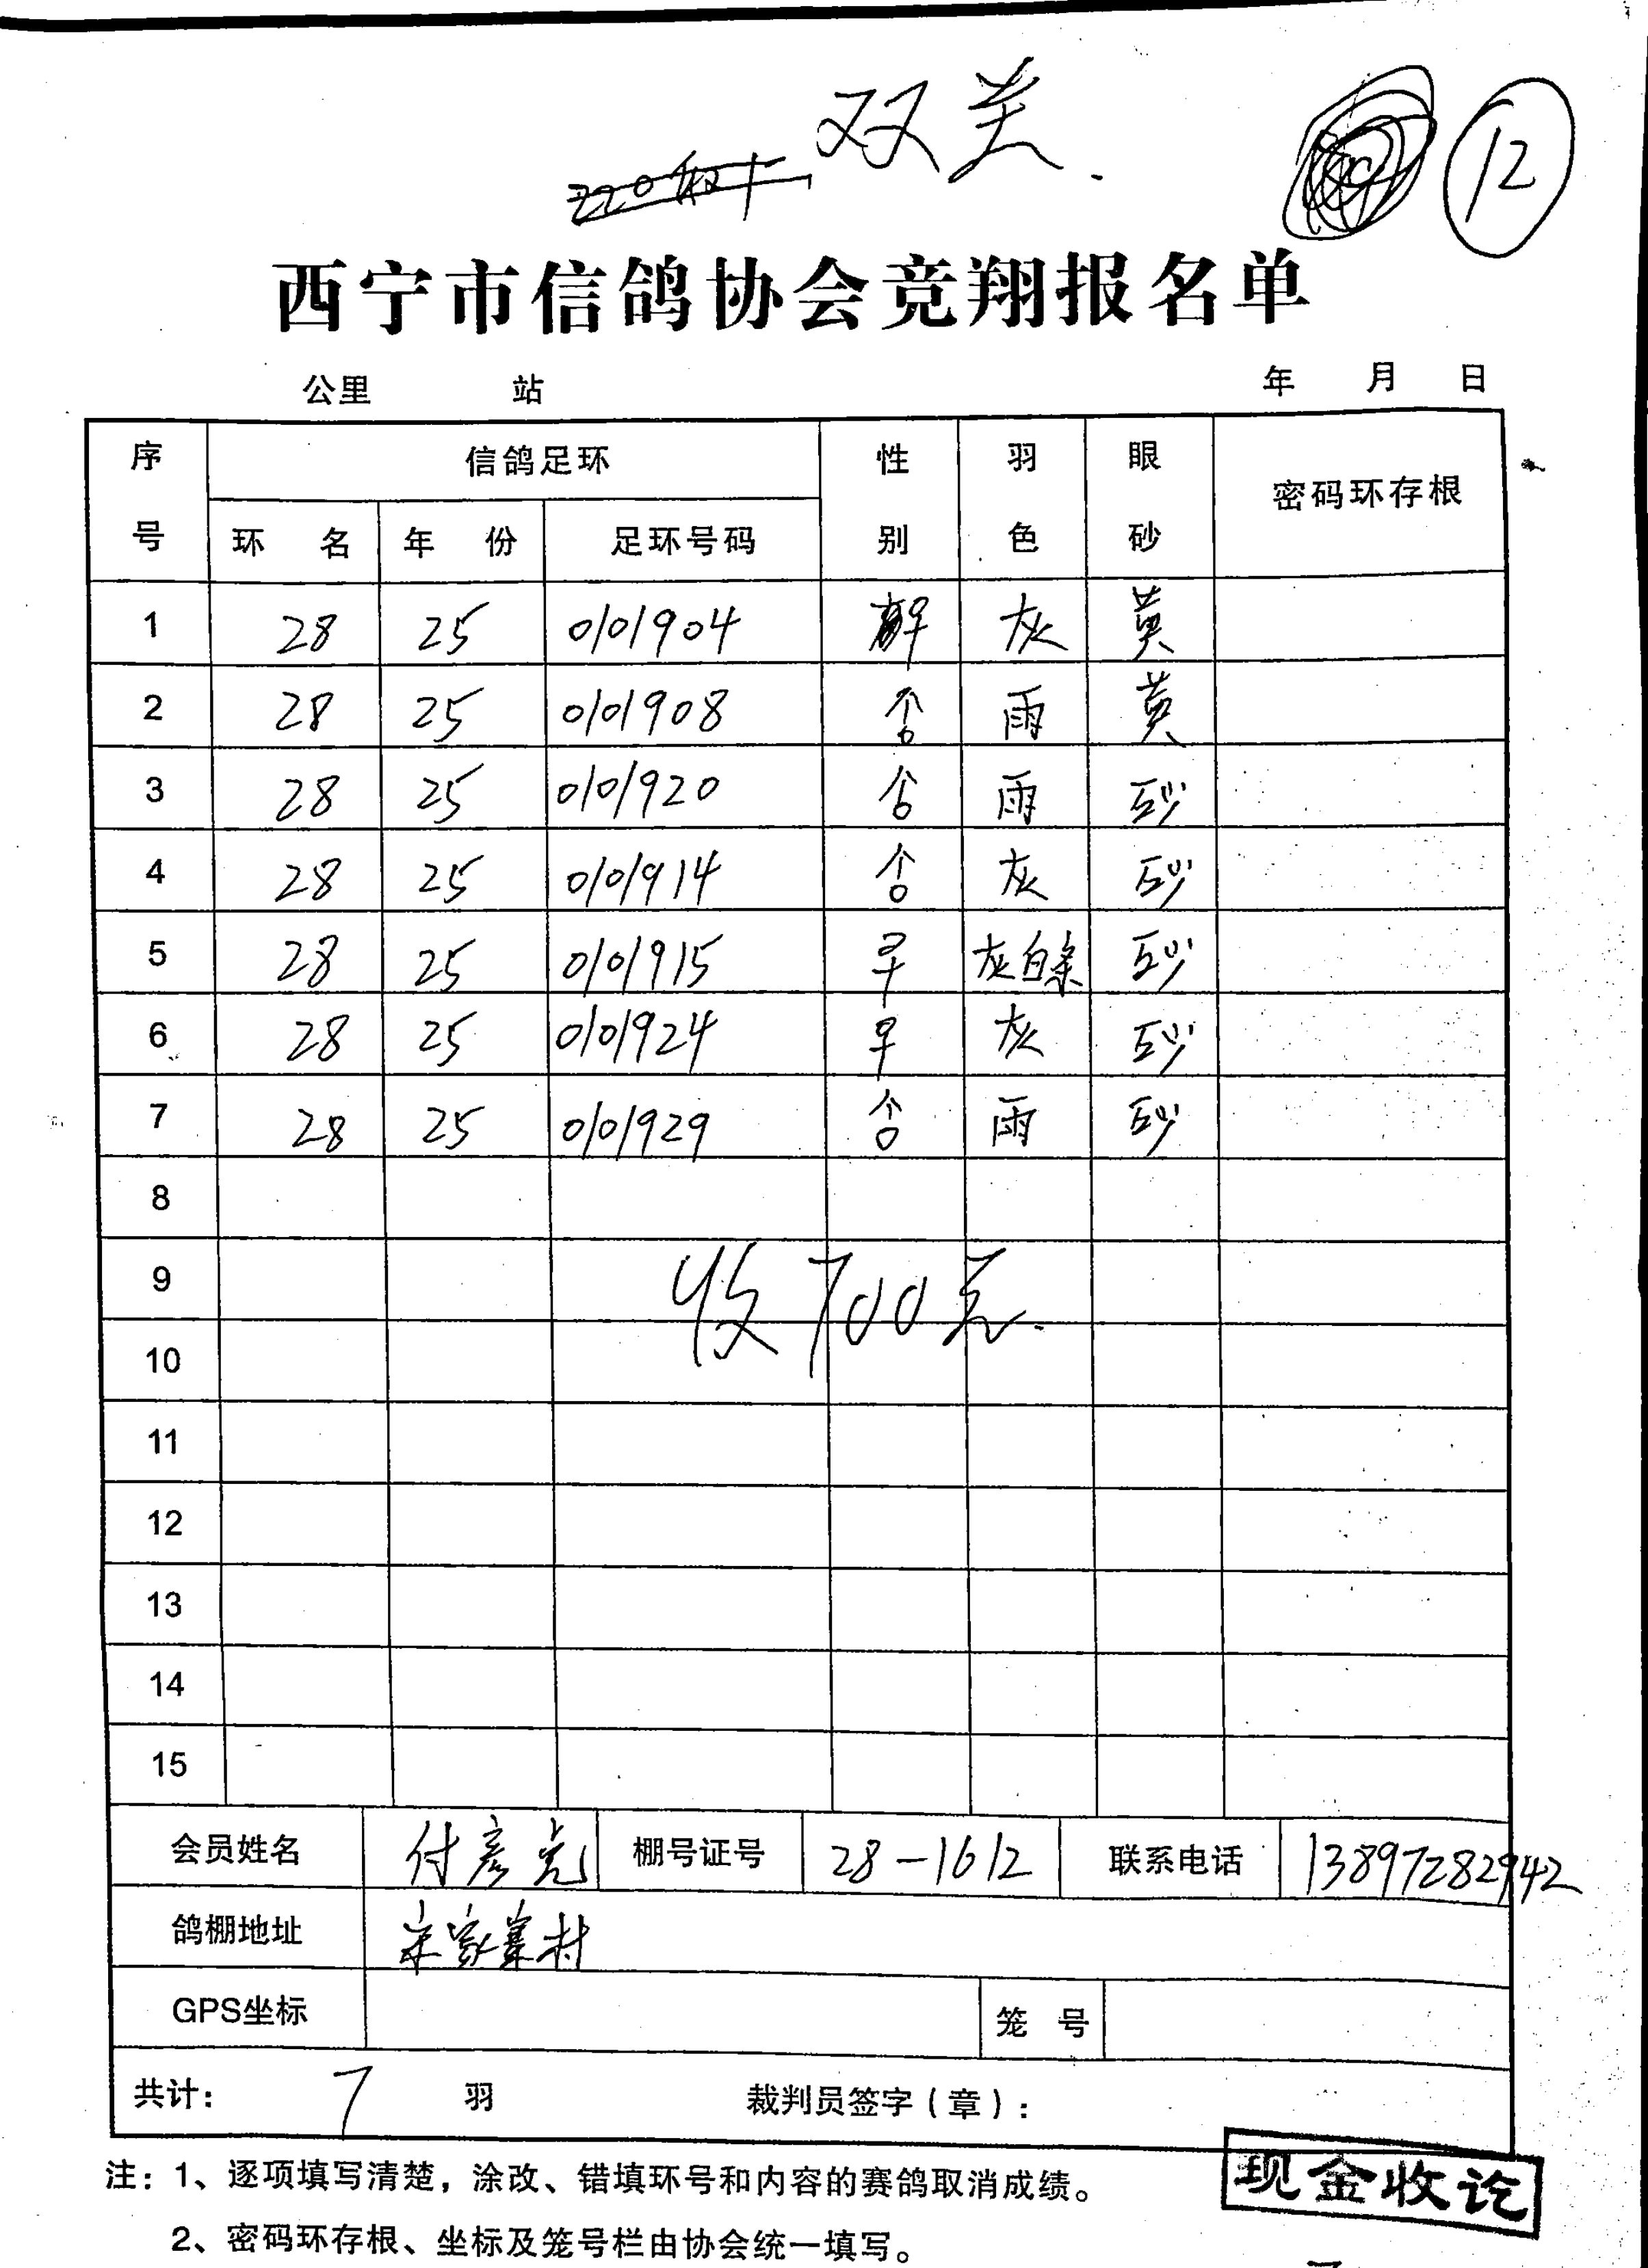 双关.
220级
12
西宁市信鸽协会竞翔报名单
公里 站 年 月 日
序号 信鸽足环 性别 羽色 眼砂 密码环存根
环名 年份 足环号码
1 28 25 0101904 灰 黄
2 28 25 0101908 雨 黄
3 28 25 0101920 雨 砂
4 28 25 0101914 灰 砂
5 28 25 0101915 灰白条 砂
6 28 25 0101924 灰 砂
7 28 25 0101929 雨 砂
8
9
收700元.
10
11
12
13
14
15
会员姓名 付彦 棚号证号 28-1612 联系电话 13897282942
鸽棚地址 宋家寨村
GPS坐标 笼号
共计: 7 羽 裁判员签字(章):
注:1、逐项填写清楚,涂改、错填环号和内容的赛鸽取消成绩。
现金收讫
2、密码环存根、坐标及笼号栏由协会统一填写。